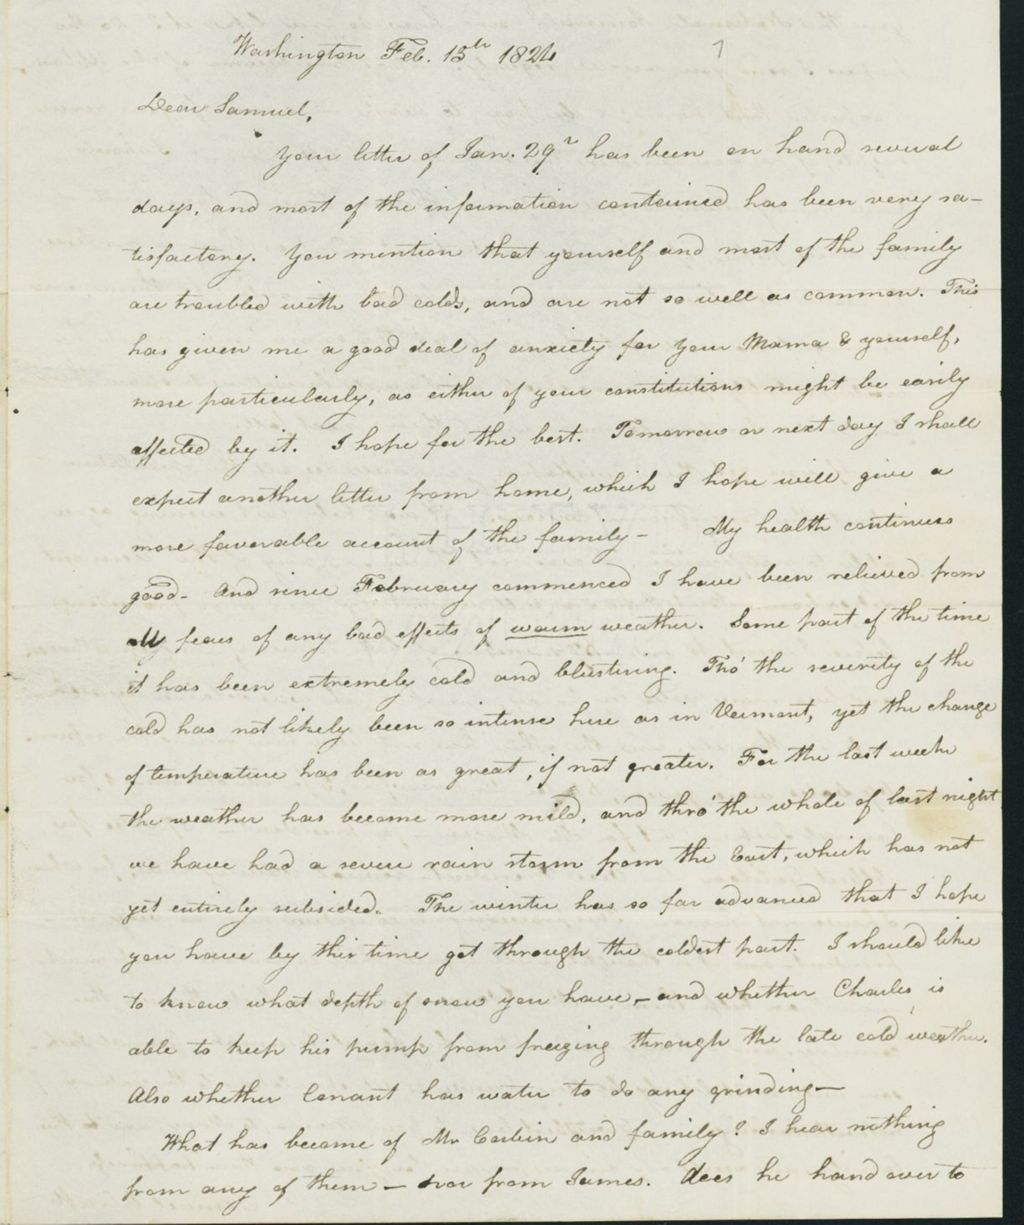 Washington Feb. 13th 1824
7
Dear Samuel,
Your letter of Jan. 29th has been on hand several
days, and most of the information contained has been very sa-
tisfactory. You mention that yourself and most of the family
are troubled with bad colds, and are not so well as common. This
has given me a good deal of anxiety for your Mama & yourself,
more particularly, as either of your constitutions might be easily
affected by it. I hope for the best. Tomorrow or next day I shall
expect another letter from home, which I hope will give a
more favorable account of the family - My health continues
good - And since February commenced I have been relieved from
My fears of any bad effects of warm weather. Some part of the time
it has been extremely cold and blustering. Tho' the severity of the
cold has not likely been so intense here as in Vermont, yet the change
of temperature has been as great, if not greater. For the last week
the weather has become more mild, and thro' the whole of last night
we have had a severe rain storm from the East, which has not
yet entirely subsided. The winter has so far advanced that I hope
you have by this time got through the coldest part. I should like
to know what depth of snow you have, - and whether Charles is
able to keep his pump from freezing through the late cold weather.
Also whether Conant has water to do any grinding -
What has become of Mr Corbin and family? I hear nothing
from any of them - nor from James. Does he hand over to